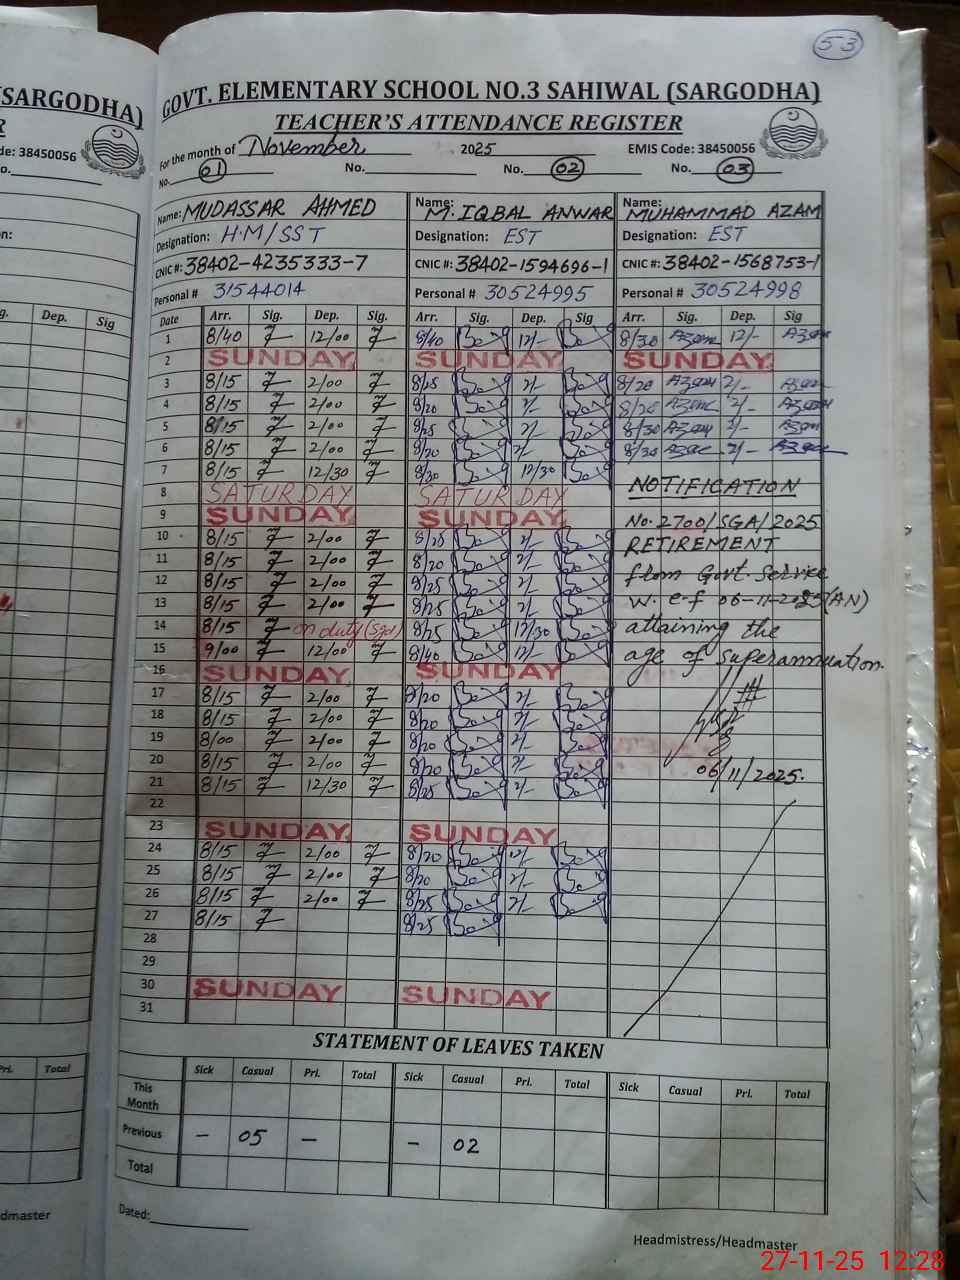 53
(SARGODHA)
GOVT. ELEMENTARY SCHOOL NO.3 SAHIWAL (SARGODHA)
TEACHER'S ATTENDANCE REGISTER
de: 38450056
For the month of November 2025 EMIS Code: 38450056
No. 01 No. No. 02 No. 03
Name: MUDASSAR AHMED Name: M. IQBAL ANWAR Name: MUHAMMAD AZAM
Designation: H.M/SST Designation: EST Designation: EST
CNIC #: 38402-4235333-7 CNIC #: 38402-1594696-1 CNIC #: 38402-1568753-1
Personal # 31544014 Personal # 30524995 Personal # 30524998
Dep. Sig
Date Arr. Sig. Dep. Sig. Arr. Sig. Dep. Sig Arr. Sig. Dep. Sig
1 8/40 12/00 8/40 12/- 8/30 Azam 12/- Azam
2 SUNDAY SUNDAY SUNDAY
3 8/15 2/00 8/25 2/- 8/20 Azam 2/- Azam
4 8/15 2/00 8/20 2/- 8/20 Azam 2/- Azam
5 8/15 2/00 8/25 2/- 8/30 Azam 2/- Azam
6 8/15 2/00 8/20 2/- 8/30 Azam 2/- Azam
7 8/15 12/30 8/30 12/30
8 SATURDAY SATURDAY
9 SUNDAY SUNDAY
10 8/15 2/00 8/25 2/-
11 8/15 2/00 8/20 2/-
12 8/15 2/00 8/25 2/-
13 8/15 2/00 8/25 2/-
14 8/15 on duty (Sgd) 8/25 12/30
15 9/00 12/00 8/40 12/-
16 SUNDAY SUNDAY
17 8/15 2/00 8/20 2/-
18 8/15 2/00 8/20 2/-
19 8/00 2/00 8/20 2/-
20 8/15 2/00 8/20 2/-
21 8/15 12/30 8/25 2/-
22
23 SUNDAY SUNDAY
24 8/15 2/00 8/20 12/-
25 8/15 2/00 8/20 2/-
26 8/15 2/00 8/25 2/-
27 8/15 8/25
28
29
30 SUNDAY SUNDAY
31
NOTIFICATION
No. 2700/SGA/2025
RETIREMENT
from Govt. Service
w.e.f 06-11-2025(AN)
attaining the
age of superannuation.
06/11/2025.
STATEMENT OF LEAVES TAKEN
Pri. Total
Sick Casual Pri. Total Sick Casual Pri. Total Sick Casual Pri. Total
This Month
Previous - 05 - - 02
Total
Dated:
dmaster
Headmistress/Headmaster
27-11-25 12:28